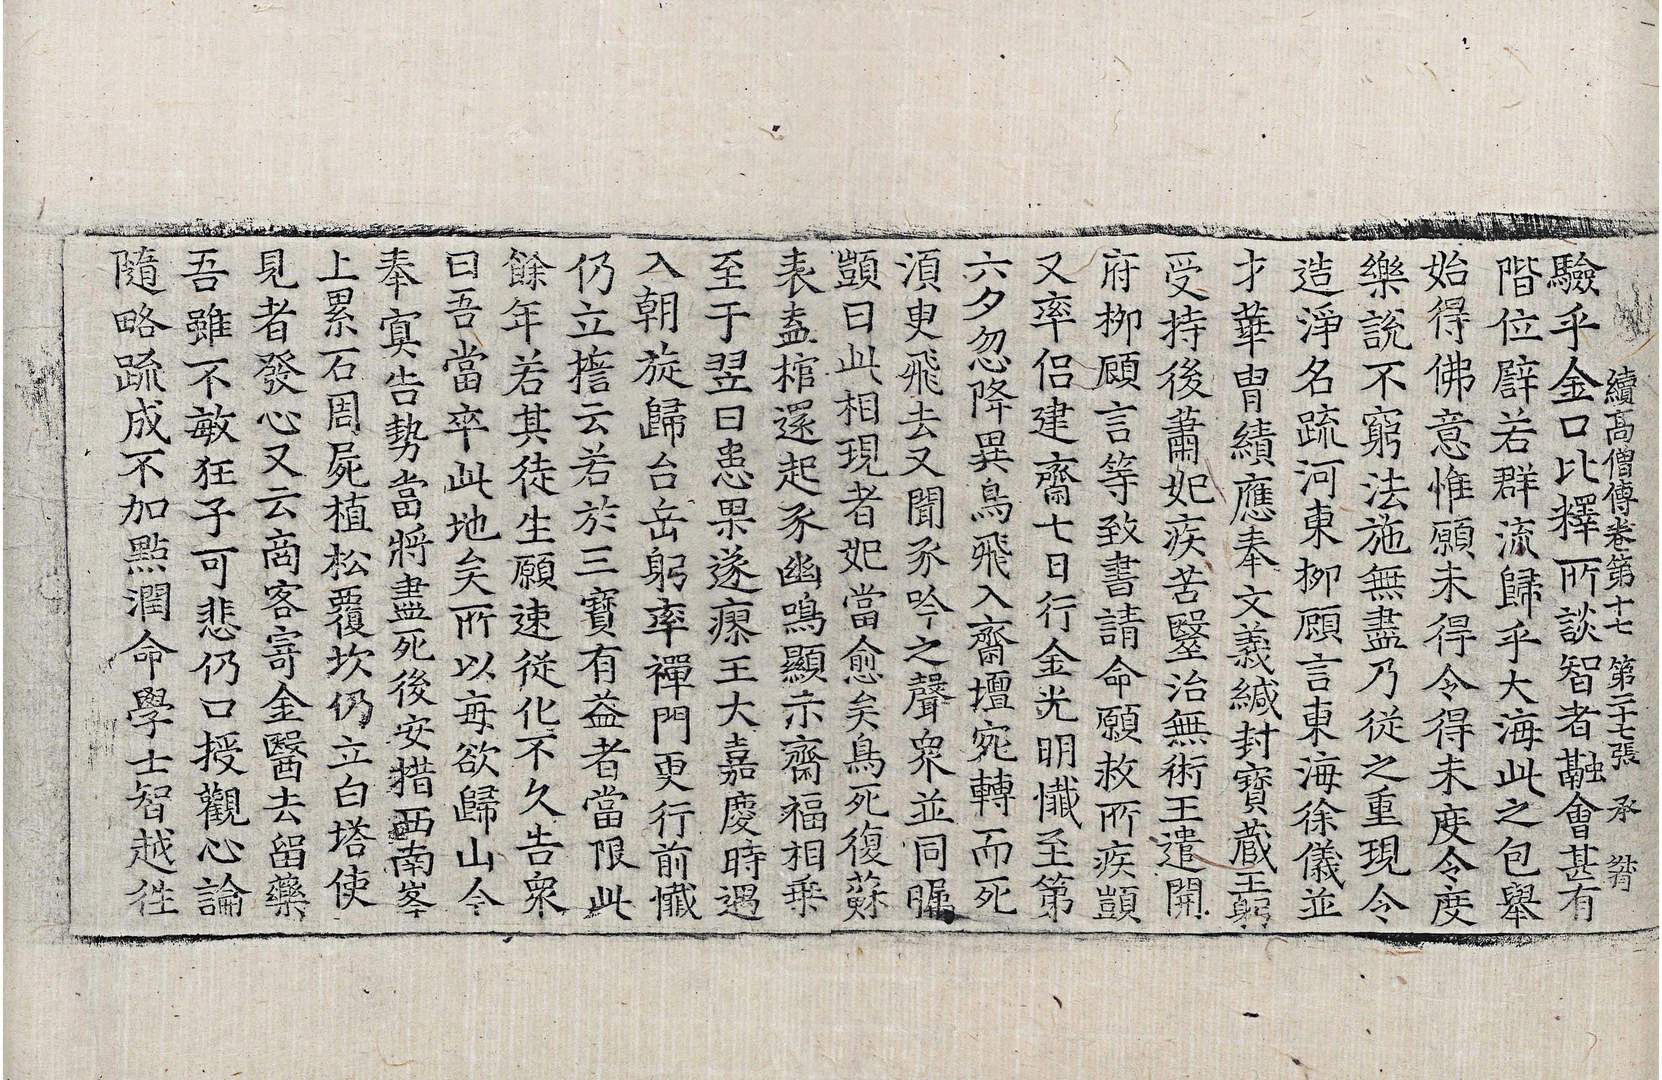 續高僧傳卷第十七 第二十七張 承
驗乎金口比釋所談智者融會甚有
階位辟若群流歸乎大海此之包舉
始得佛意惟願未得令得未度令度
樂說不窮法施無盡乃從之重現令
造淨名疏河東柳顧言東海徐儀並
才華胄績應奉文義緘封寶藏王躬
受持後蕭妃疾苦醫治無術王遣開
府柳顧言等致書請命願救所疾顗
又率侶建齋七日行金光明懺至第
六夕忽降異鳥飛入齋壇宛轉而死
須臾飛去又聞豕吟之聲衆並同矚
顗曰此相現者妃當愈矣鳥死復蘇
表蓋棺還起豕幽鳴顯示齋福相乘
至于翌日患果遂瘳王大嘉慶時遇
入朝旋歸台岳躬率禪門更行前懺
仍立誓云若於三寶有益者當限此
餘年若其徒生願速從化不久告衆
曰吾當卒此地矣所以每欲歸山今
奉冥告勢當將盡死後安措西南峯
上累石周屍植松覆坎仍立白塔使
見者發心又云商客寄金醫去留藥
吾雖不敏狂子可悲仍口授觀心論
隨略疏成不加點潤命學士智越往